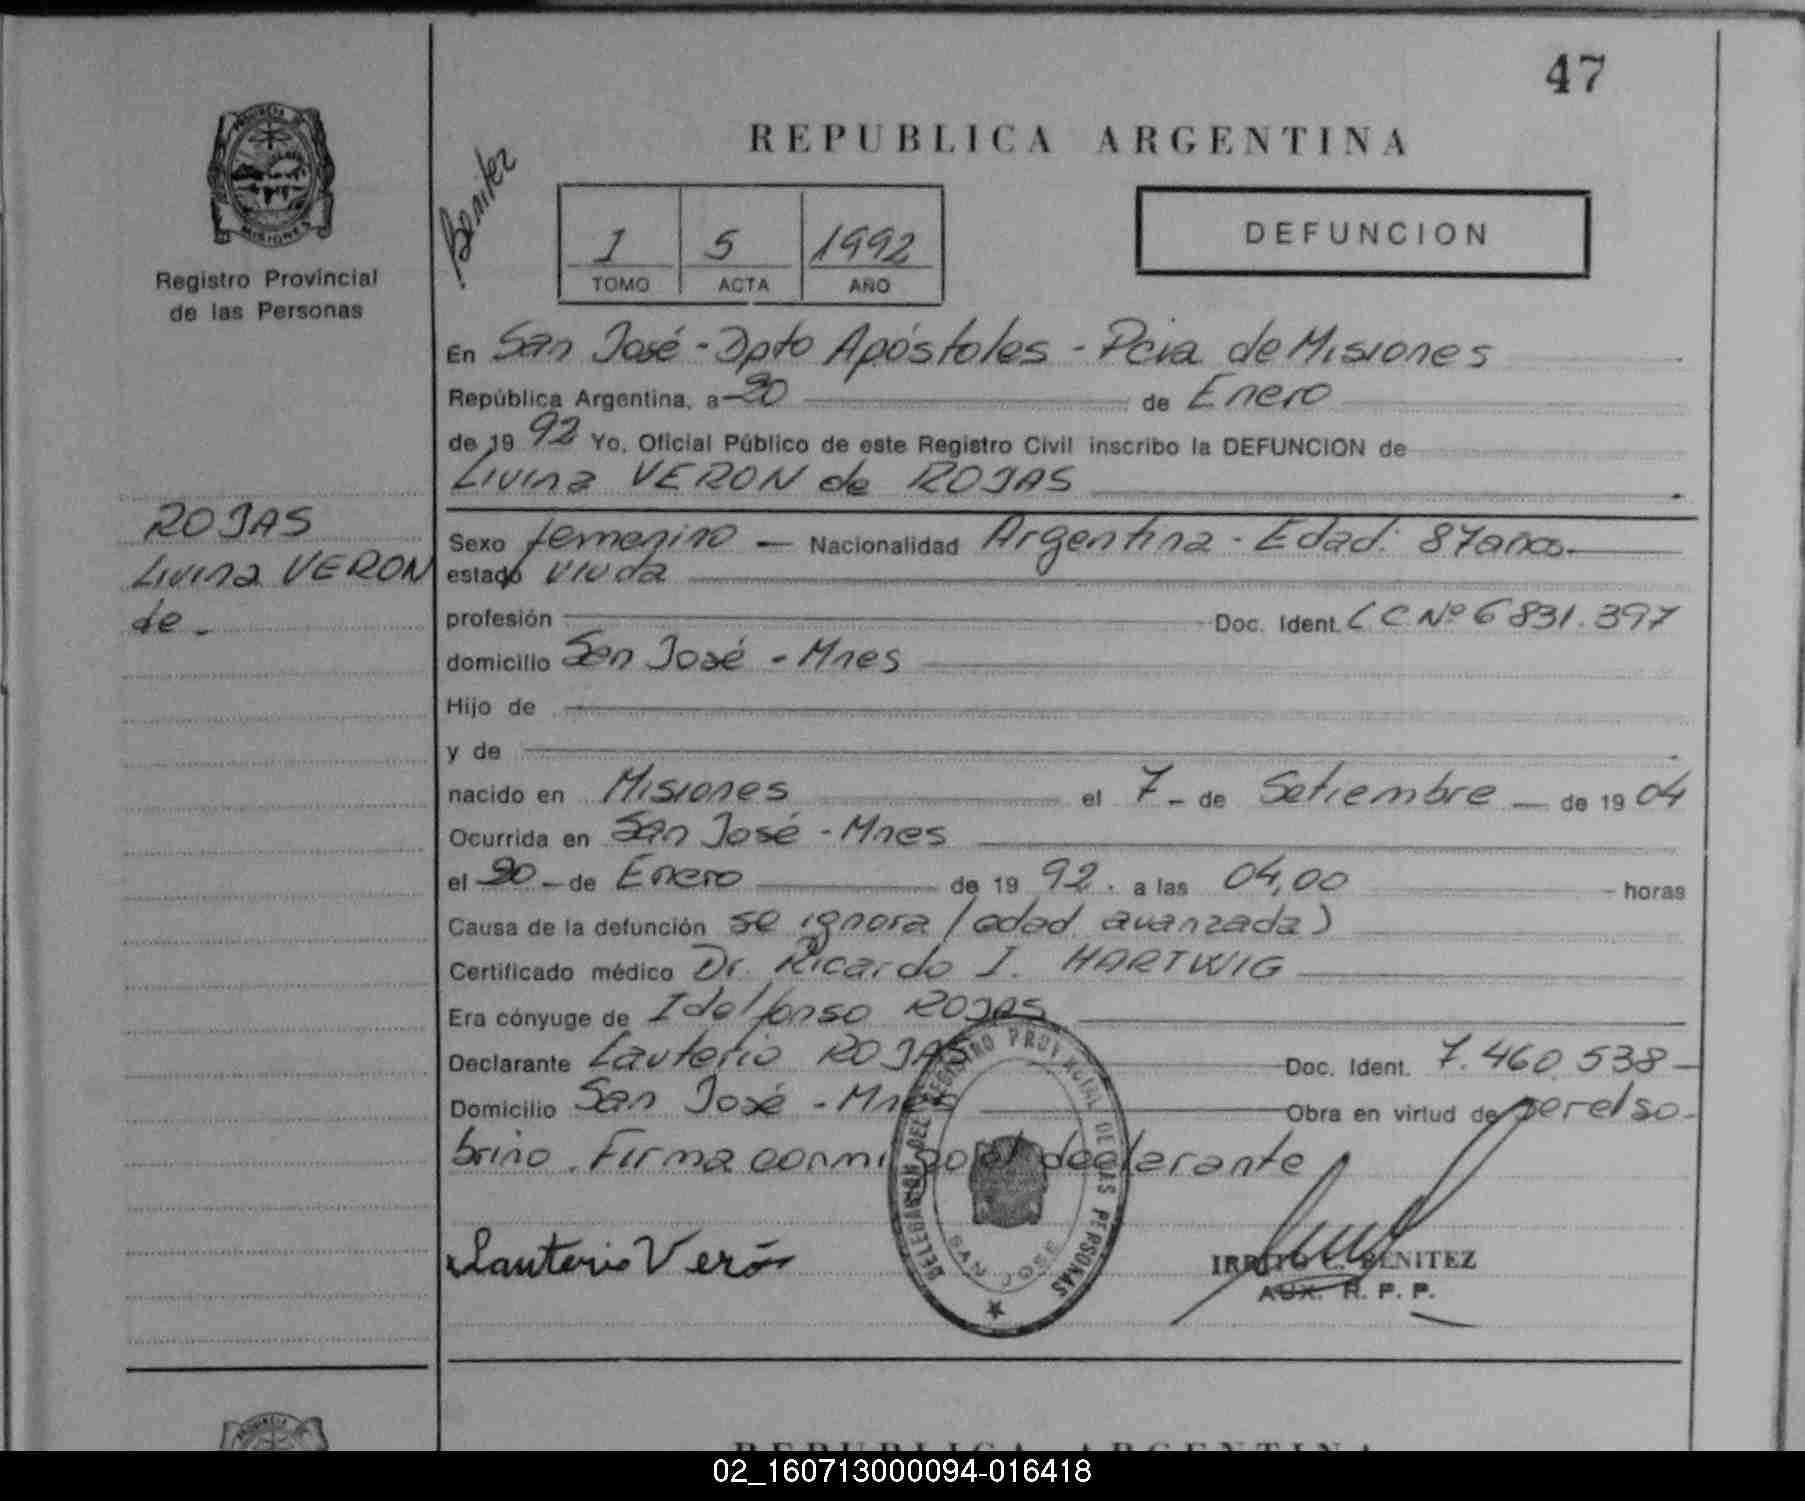 47
REPUBLICA ARGENTINA
PROVINCIA DE
MISIONES
Registro Provincial
de las Personas
Benitez
1 5 1992
TOMO ACTA AÑO
DEFUNCION
En San José - Dpto Apóstoles - Pcia de Misiones
República Argentina, a 20 de Enero
de 19 92 Yo, Oficial Público de este Registro Civil inscribo la DEFUNCION de
Livina VERON de ROJAS
ROJAS
Livina VERON
de -
Sexo femenino - Nacionalidad Argentina - Edad: 87 años
estado viuda
profesión Doc. Ident. LC Nº 6831.397
domicilio San José - Mnes
Hijo de
y de
nacido en Misiones el 7 - de Setiembre - de 19 04
Ocurrida en San José - Mnes
el 20 - de Enero de 19 92. a las 04,00 horas
Causa de la defunción se ignora (edad avanzada)
Certificado médico Dr. Ricardo I. HARTWIG
Era cónyuge de Idelfonso ROJAS
Declarante Lauterio ROJAS Doc. Ident. 7.460.538 -
Domicilio San José - Mnes Obra en virtud de ser el so-
brino. Firma conmigo el declarante
DELEGACION DEL REGISTRO PROVINCIAL DE LAS PERSONAS
SAN JOSE
Lauterio Verón
C. BENITEZ
AUX. R. P. P.
REPUBLICA ARGENTINA
02_160713000094-016418